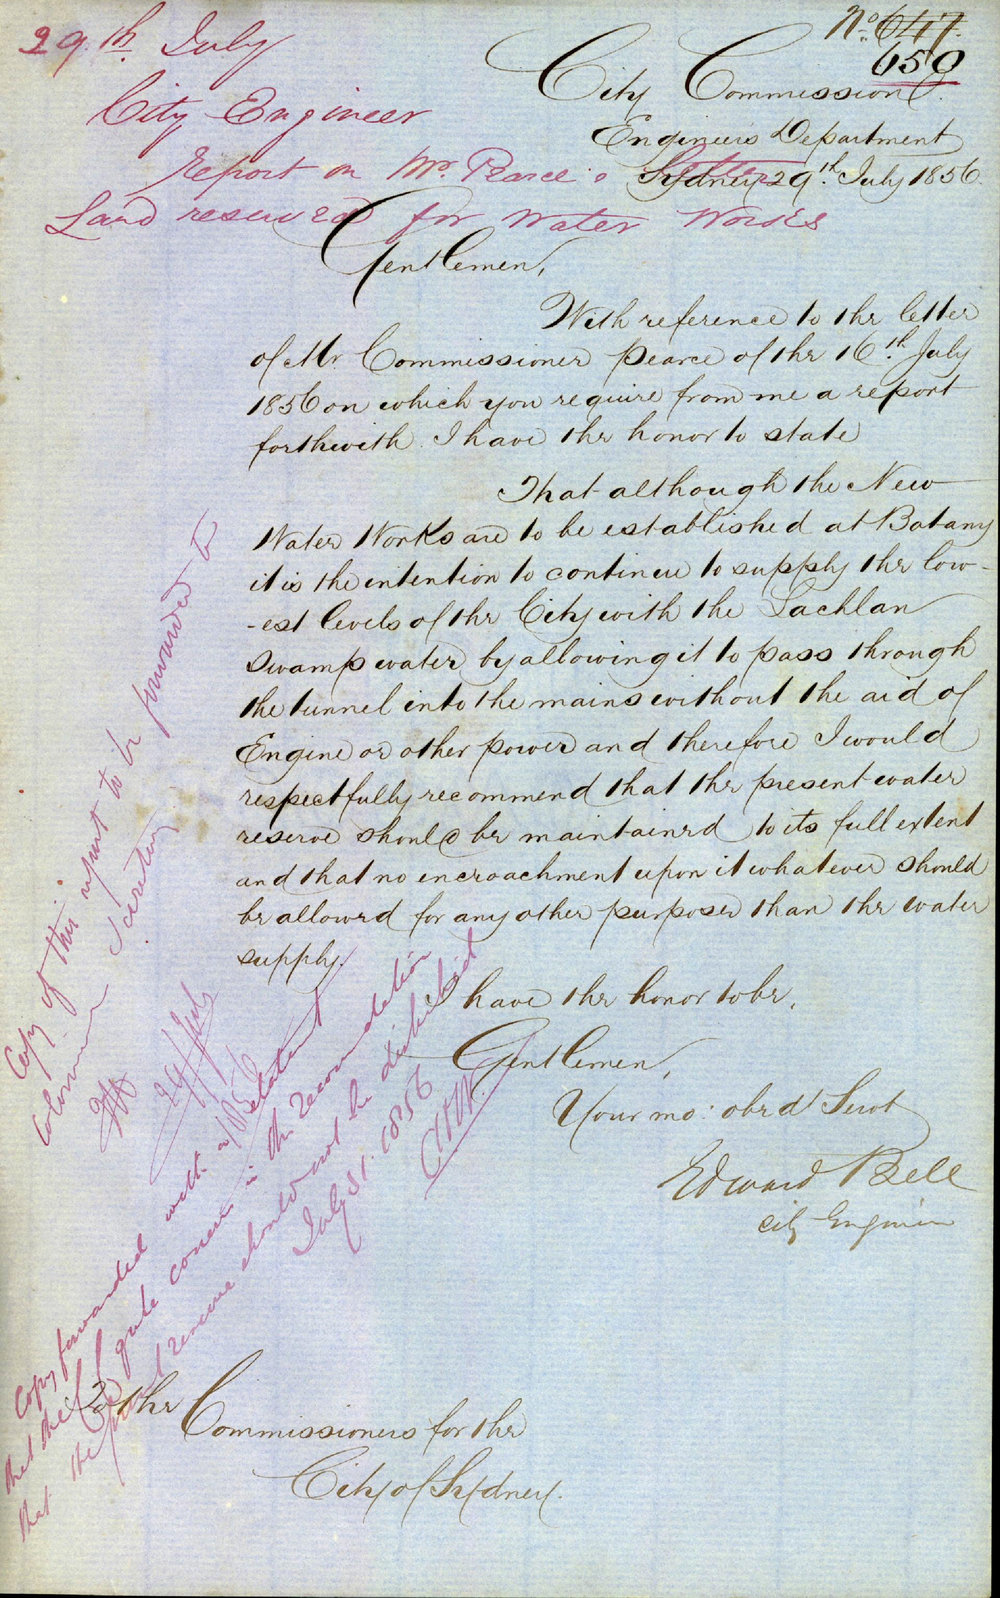 No. 647.
650
29th. July
City Engineer
Report on Mr. Pearce's Letter
Land reserved for Water Works
City Commission.
Engineers Department
Sydney 29th. July 1856.
Gentlemen,
With reference to the letter
of Mr. Commissioner Pearce of the 16th. July
1856 on which you require from me a report
forthwith. I have the honor to state
That although the New
Water Works are to be established at Botany
it is the intention to continue to supply the low-
-est levels of the City with the Lachlan
Swamp water by allowing it to pass through
the tunnel into the mains without the aid of
Engine or other power and therefore I would
respectfully recommend that the present water
reserve should be maintained to its full extent
and that no encroachment upon it whatever should
be allowed for any other purposes than the water
supply.
I have the honor to be,
Gentlemen,
Your mo: obed Servt
Edward Bell
City Engineer
To the
Commissioners for the
City of Sydney.
Copy of this report to be forwarded to
Colonial Secretary
29/July
1856
Copy forwarded with a statement
that the quite concur in the recommendation
that the present reserve should not be disturbed
July 31. 1856